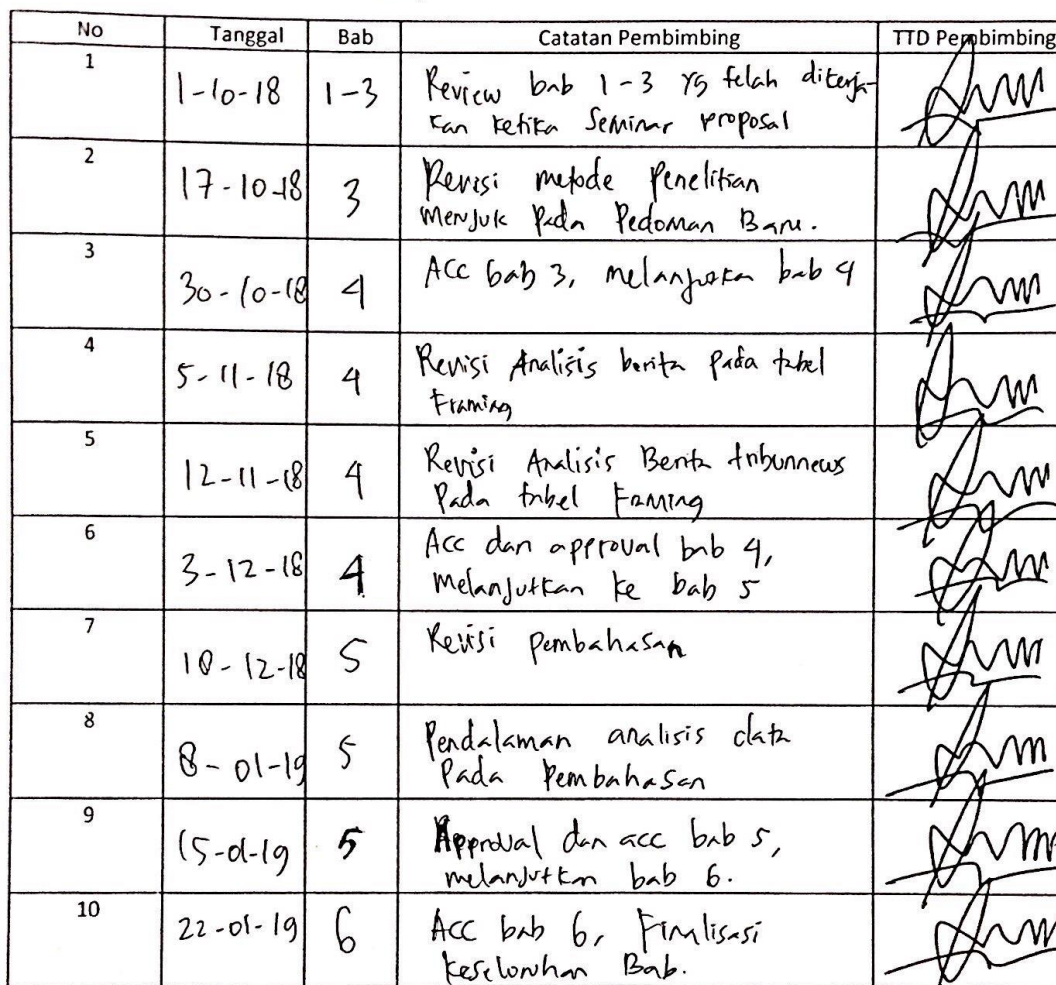 No Tanggal Bab Catatan Pembimbing TTD Pembimbing
1 1-10-18 1-3 Review bab 1-3 yg telah dikerja-
kan ketika Seminar proposal
2 17-10-18 3 Revisi metode Penelitian
merujuk Pada Pedoman Baru.
3 30-10-18 4 ACC bab 3, melanjutkan bab 4
4 5-11-18 4 Revisi Analisis berita Pada tabel
Framing
5 12-11-18 4 Revisi Analisis Berita tribunnews
Pada tabel Framing
6 3-12-18 4 Acc dan approval bab 4,
melanjutkan ke bab 5
7 10-12-18 5 Revisi pembahasan
8 8-01-19 5 Pendalaman analisis data
Pada Pembahasan
9 15-01-19 5 Approval dan acc bab 5,
melanjutkan bab 6.
10 22-01-19 6 Acc bab 6, Finalisasi
keseluruhan Bab.